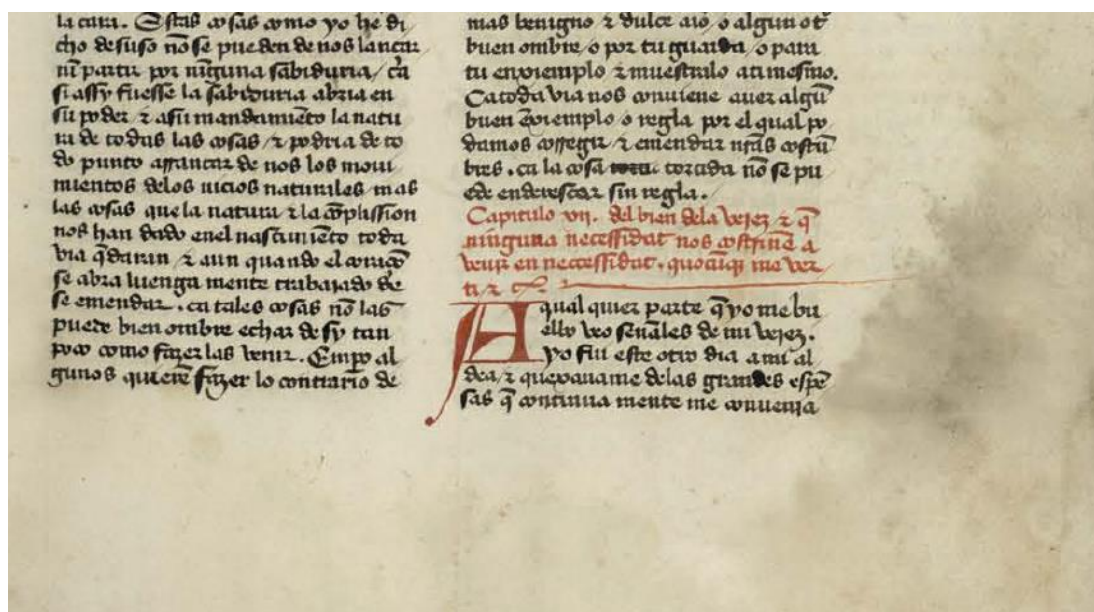 la cara. Estas cosas como yo he di
cho desuso nõ se pueden de nos lançar
nĩ partir por nĩguna sabiduria / ca
si assy fuesse la sabiduria abria en
su poder ⁊ asu mandamiẽto la natu
ra de todas las cosas / ⁊ podria de to
do punto arrancar de nos los moui
mientos delos uicios naturales mas
las cosas que la natura ⁊ la cõplission
nos han dado enel nascimiẽto toda
via q̃daran / ⁊ aun quando el coraçõ
se abra luenga mente trabajado de
se emendar . ca tales cosas nõ las
puede bien ombre echar de sy tan
poco como fazer las venir . Emp̃o al
gunos quierẽ fazer lo contrario de
mas benigno ⁊ dulce aio , o algun ot̃
buen ombre / o por tu guarda / o para
tu enxiemplo ⁊ muestralo ati mesmo.
Ca toda via nos conuiene auer algũ
buen ẽxiemplo o regla por el qual po
damos corregir / ⁊ emendar nr̃as costũ
bres . ca la cosa torcida nõ se pu
ede enderesçar sin regla .
Capitulo vij. del bien dela vejez ⁊ q̃
ninguna necessidat nos costrinẽ a
venir en neccessidat . quocũq̃ me ver
ti / ⁊ c̃.
A qual quier parte q̃ yo me bu
eluo veo señales de mi vejez .
yo fui este otro dia a mi al
dea / ⁊ quexauame delas grandes espẽ
sas q̃ continua mente me conuenia